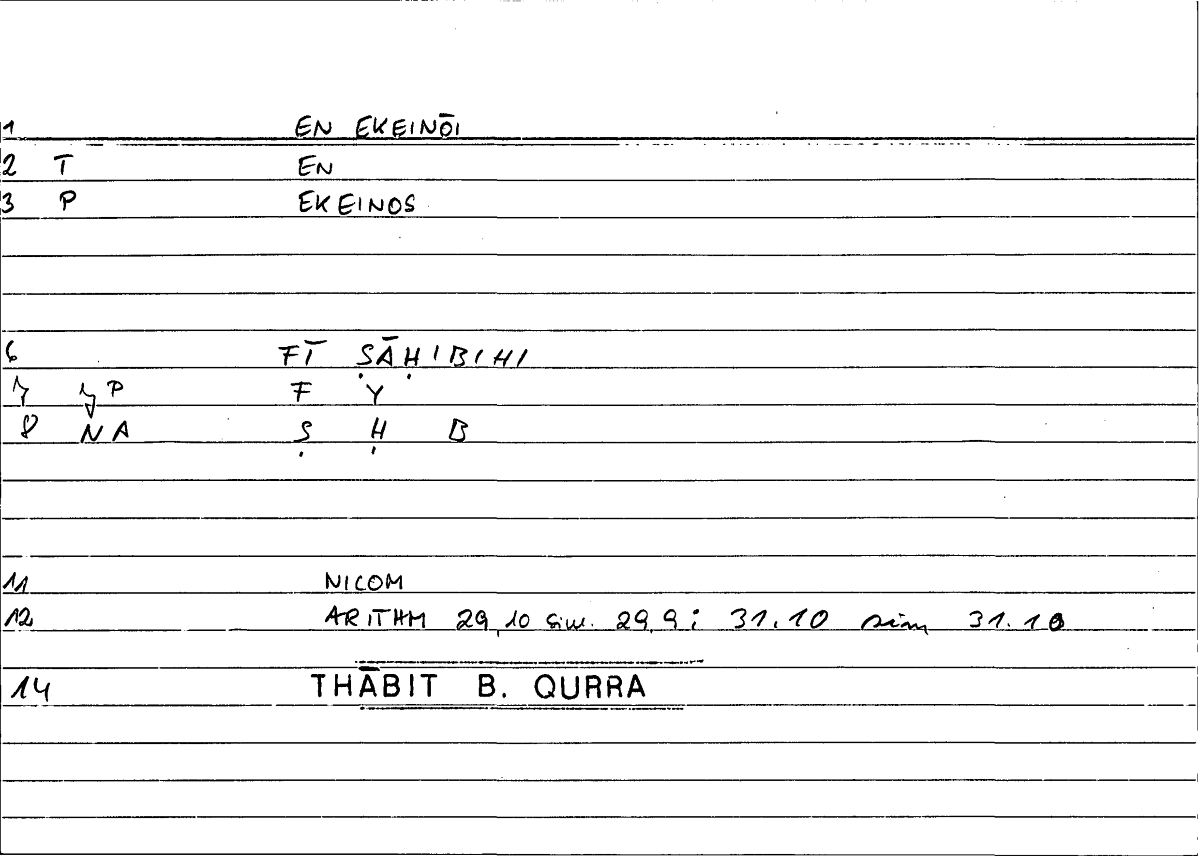 1 EN EKEINŌI
2 T EN
3 P EKEINOS
6 FĪ ṢĀḤIBIHI
7 P F Y
8 NA Ṣ Ḥ B
11 NICOM
12 ARITHM 29,10 sim. 29,9; 31.10 sim 31.10
14 THĀBIT B. QURRA